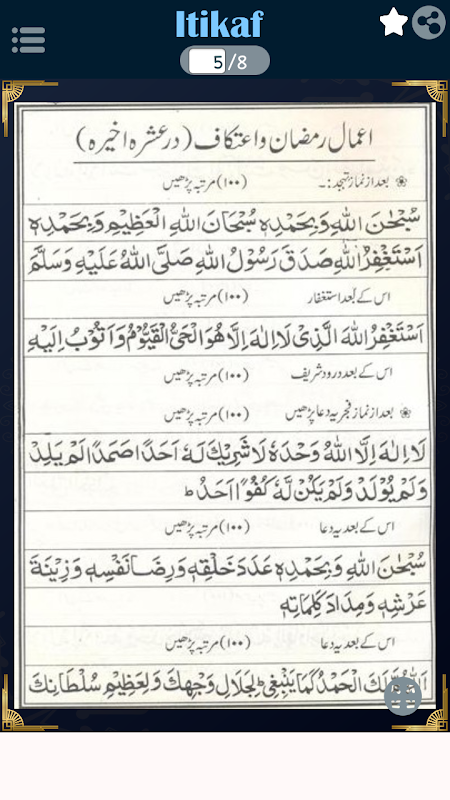 Itikaf
5/8
اعمال رمضان و اعتکاف (در عشرہ اخیرہ)
بعد از نماز تہجد :۔ (۱۰۰) مرتبہ پڑھیں
سُبْحٰنَ اللّٰهِ وَبِحَمْدِهٖ سُبْحَانَ اللّٰهِ الْعَظِیْمِ وَبِحَمْدِهٖ
اَسْتَغْفِرُ اللّٰهَ صَدَقَ رَسُوْلُ اللّٰهِ صَلَّی اللّٰهُ عَلَیْهِ وَسَلَّمَ
اس کے بعد استغفار (۱۰۰) مرتبہ پڑھیں
اَسْتَغْفِرُ اللّٰهَ الَّذِیْ لَا اِلٰهَ اِلَّا هُوَ الْحَیُّ الْقَیُّوْمُ وَاَتُوْبُ اِلَیْهِ
اس کے بعد درود شریف (۱۰۰) مرتبہ پڑھیں
بعد از نماز فجر یہ دعا پڑھیں (۱۰۰) مرتبہ پڑھیں
لَا اِلٰهَ اِلَّا اللّٰهُ وَحْدَهٗ لَا شَرِیْكَ لَهٗ اَحَدًا صَمَدًا لَمْ یَلِدْ
وَلَمْ یُوْلَدْ وَلَمْ یَكُنْ لَّهٗ كُفُوًا اَحَدٌ ط
اس کے بعد یہ دعا (۱۰۰) مرتبہ پڑھیں
سُبْحٰنَ اللّٰهِ وَبِحَمْدِهٖ عَدَدَ خَلْقِهٖ وَرِضَا نَفْسِهٖ وَزِیْنَةَ
عَرْشِهٖ وَمِدَادَ كَلِمَاتِهٖ
اس کے بعد یہ دعا (۱۰۰) مرتبہ پڑھیں
لَكَ الْحَمْدُ كَمَا یَنْبَغِیْ لِجَلَالِ وَجْهِكَ وَلِعَظِیْمِ سُلْطَانِكَ